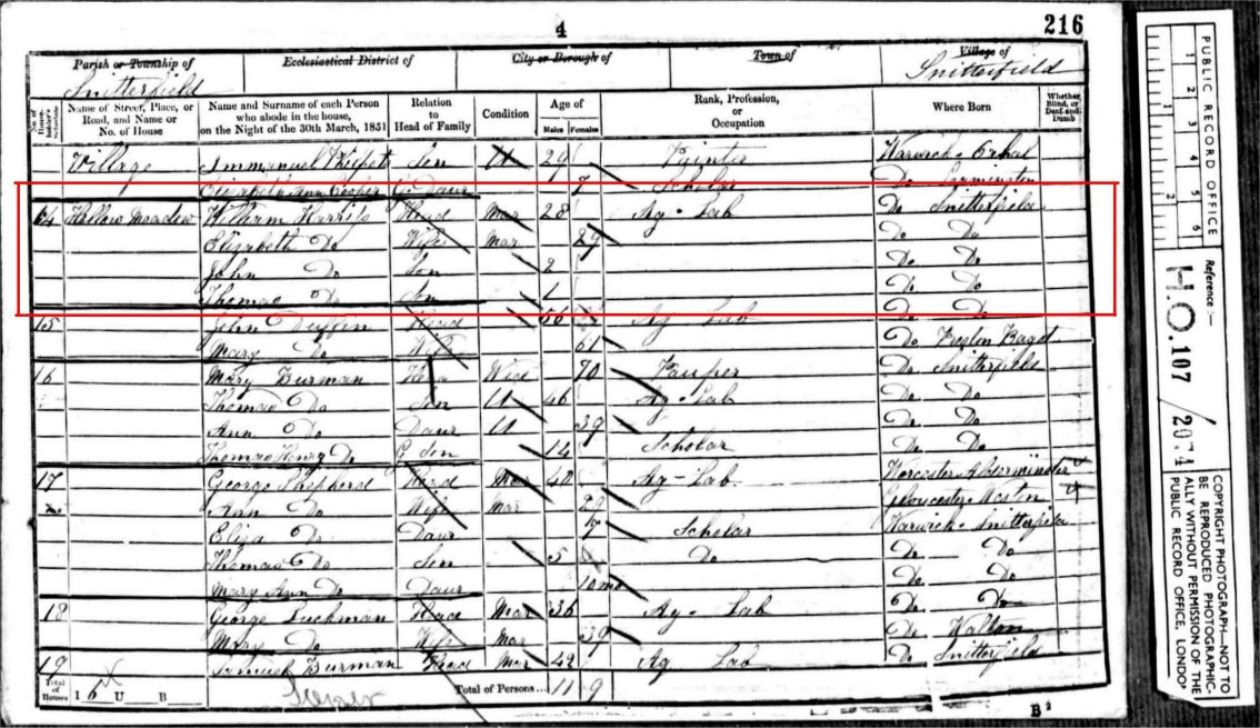 4
216
Parish or Township of
Snitterfield
Ecclesiastical District of
City or Borough of
Town of
Village of
Snitterfield
No. of House-holder's Schedule
Name of Street, Place, or Road, and Name or No. of House
Name and Surname of each Person who abode in the house, on the Night of the 30th March, 1851
Relation to Head of Family
Condition
Age of
Males Females
Rank, Profession, or Occupation
Where Born
Whether Blind, or Deaf-and-Dumb
Village Immanuel Son U 29 Painter Warwick
Elizabeth Ann Cooper G Daur 7 Scholar Do
14 Hollow Meadow William Head Mar 28 Ag. Lab Do Snitterfield
Elizabeth Do Wife Mar 29 Do Do
John Do Son 2 Do Do
Thomas Do Son 1 Do Do
15 John Duffin Head 56 Ag Lab Do Do
Mary Do Wife 61 Do Preston Bagot
16 Mary Burman Head Wid 70 Pauper Do Snitterfield
Thomas Do Son U 46 Ag. Lab Do Do
Ann Do Daur U 39 Do Do
Thomas Henry Do G Son 14 Scholar Do Do
17 George Shepherd Head Mar 40 Ag-Lab Worcester Alderminster
Ann Do Wife Mar 29 Gloucester Weston
Eliza Do Daur 7 Scholar Warwick Snitterfield
Thomas Do Son 5 Do Do Do
Mary Ann Do Daur 10 mo Do Do
18 George Luckman Head Mar 36 Ag. Lab Do Do
Mary Do Wife Mar 39 Do Walton
19 Samuel Burman Head Mar 42 Ag Lab Do Snitterfield
Total of Houses
1 6 U B
Total of Persons... 11 9
B²
PUBLIC RECORD OFFICE
1 2 3 4 5 6
1 2
Reference :-
H.O. 107 / 2074
COPYRIGHT PHOTOGRAPH-NOT TO
BE REPRODUCED PHOTOGRAPHIC-
ALLY WITHOUT PERMISSION OF THE
PUBLIC RECORD OFFICE, LONDON